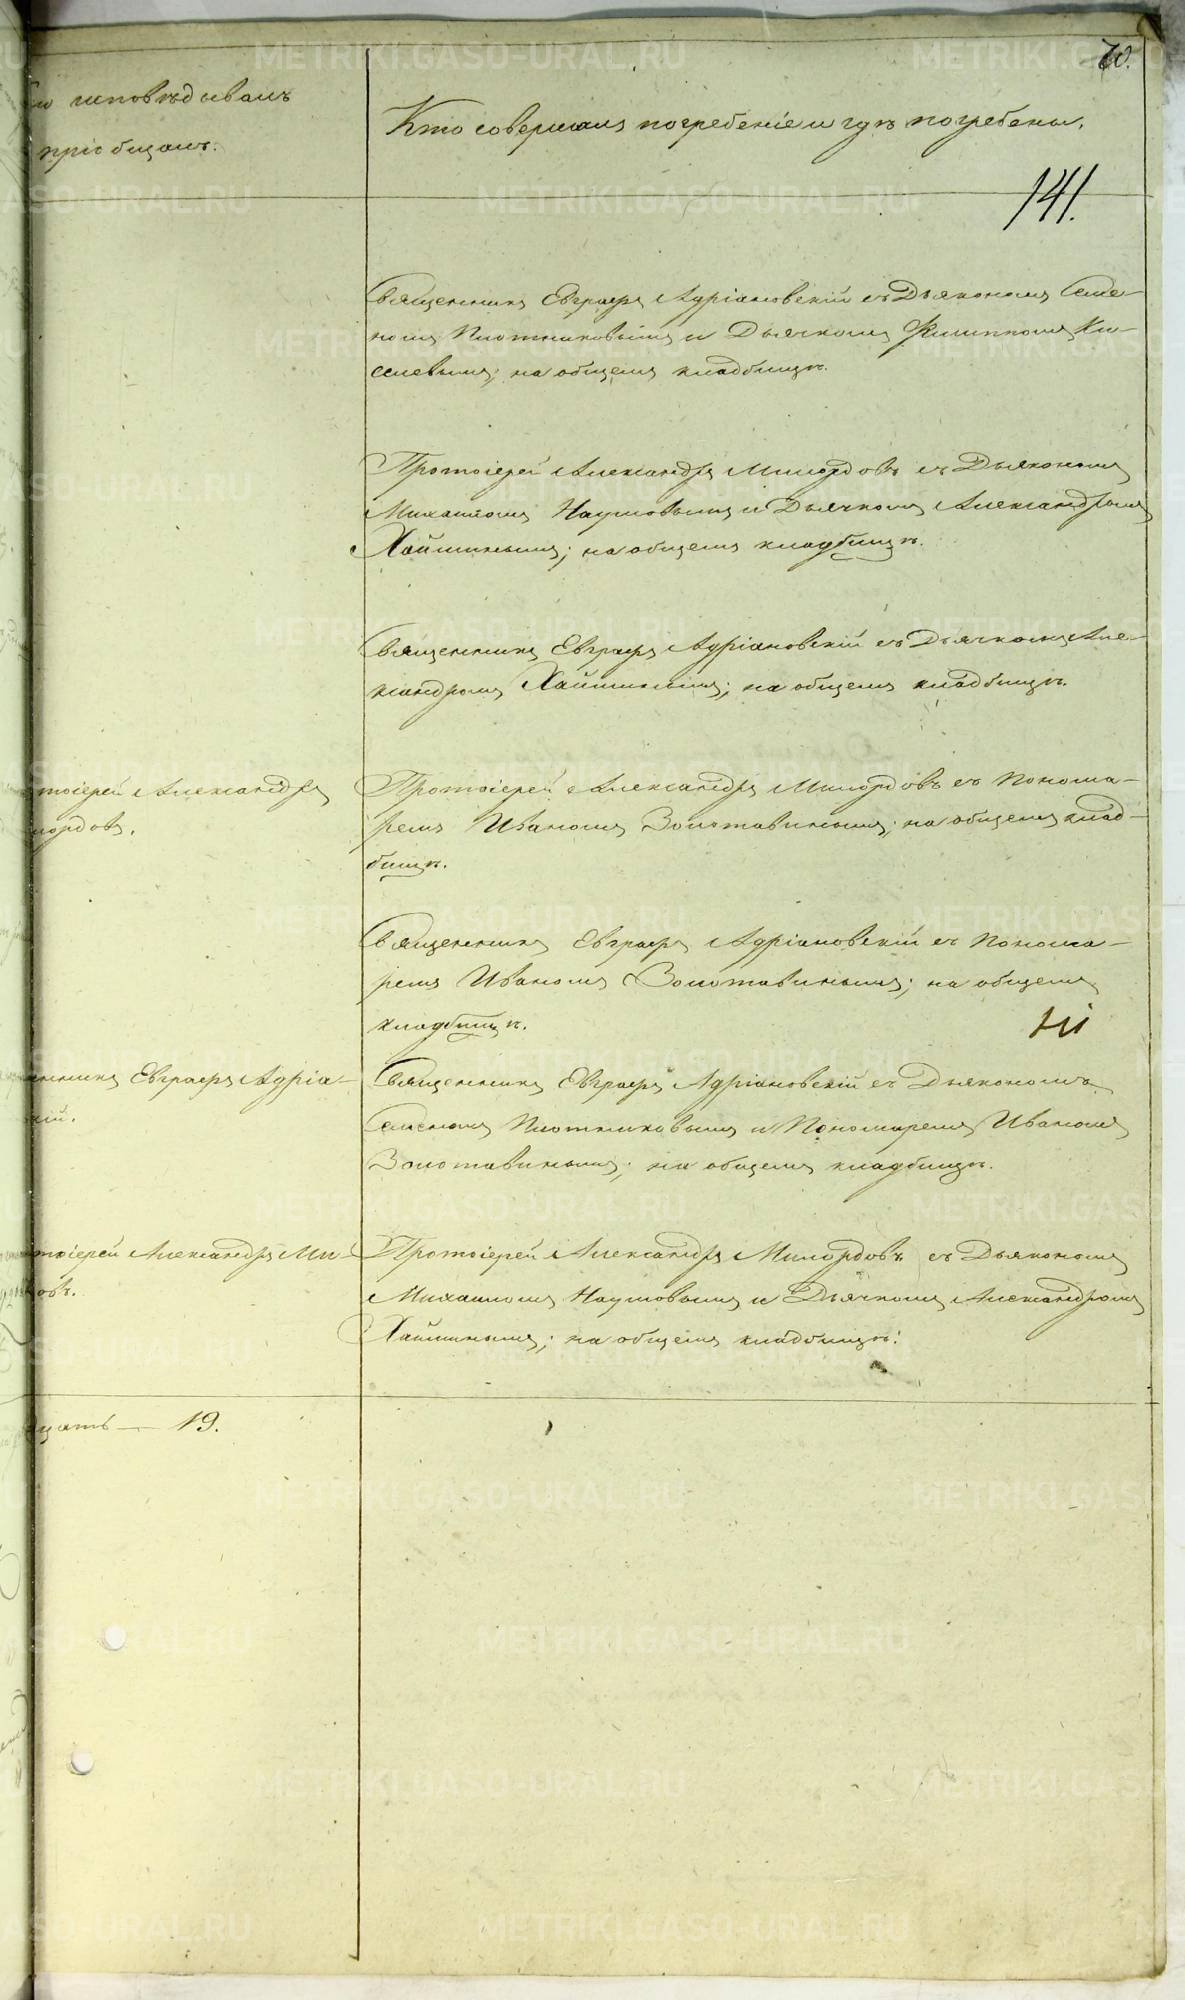 70.
исповѣдывалъ
пріобщалъ.
Кто совершалъ погребеніе и гдѣ погребены.
141.
Священникъ Евграфъ Адріановскій съ Дьякономъ Семе-
номъ Плотниковымъ и Дьячкомъ Филиппомъ Ки-
селевымъ; на общемъ кладбищѣ.
Протоіерей Александръ Милордовъ съ Дьякономъ
Михаиломъ Наумовымъ и Дьячкомъ Александромъ
Хайминымъ; на общемъ кладбищѣ.
Священникъ Евграфъ Адріановскій съ Дьячкомъ Але-
ксандромъ Хайминымъ; на общемъ кладбищѣ.
тоіерей Александръ
лордовъ.
Протоіерей Александръ Милордовъ съ Понома-
ремъ Иваномъ Золотавинымъ; на общемъ клад-
бищѣ.
Священникъ Евграфъ Адріановскій съ Понома-
ремъ Иваномъ Золотавинымъ; на общемъ
кладбищѣ.
енникъ Евграфъ Адріа-
кій.
Священникъ Евграфъ Адріановскій съ Дьякономъ
Семеномъ Плотниковымъ и Пономаремъ Иваномъ
Золотавинымъ; на общемъ кладбищѣ.
тоіерей Александръ Ми-
овъ.
Протоіерей Александръ Милордовъ съ Дьякономъ
Михаиломъ Наумовымъ и Дьячкомъ Александромъ
Хайминымъ; на общемъ кладбищѣ.
цать — 19.
METRIKI.GASO-URAL.RU